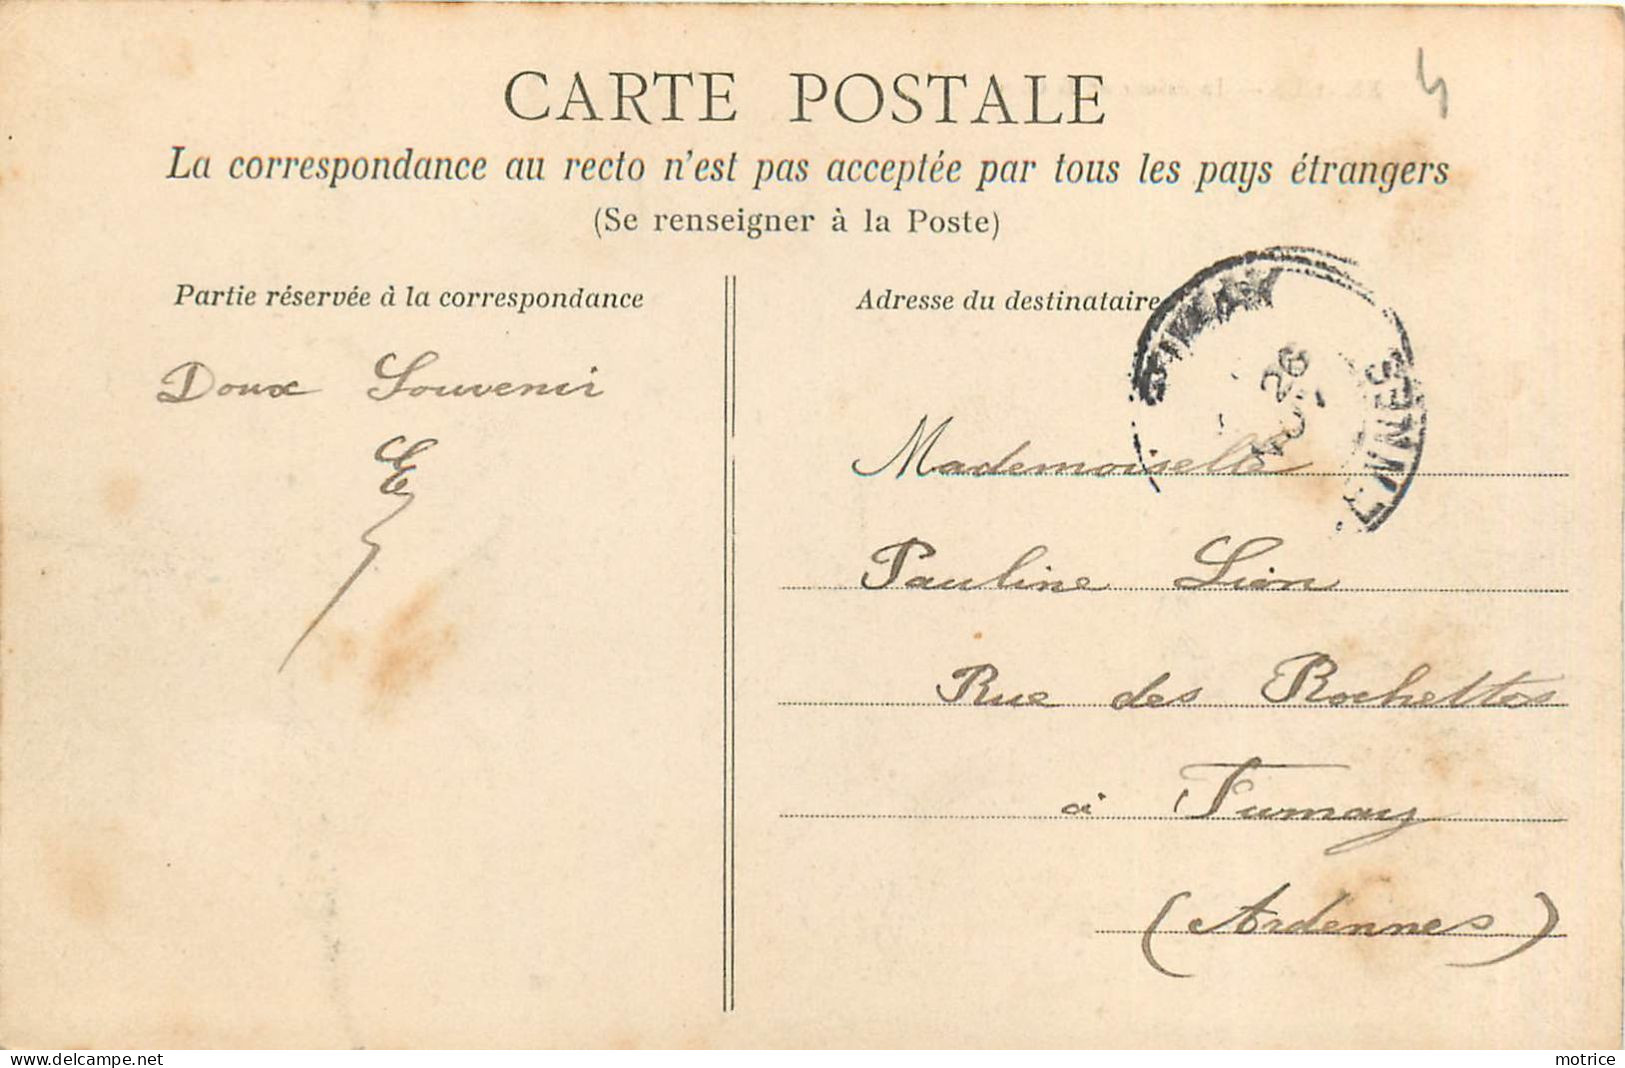 CARTE POSTALE
La correspondance au recto n'est pas acceptée par tous les pays étrangers
(Se renseigner à la Poste)
Partie réservée à la correspondance
Adresse du destinataire
Doux Souvenir
E
Mademoiselle
Pauline Lion
Rue des Rochettes
à Fumay
(Ardennes)
26
delcampe.net
motrice